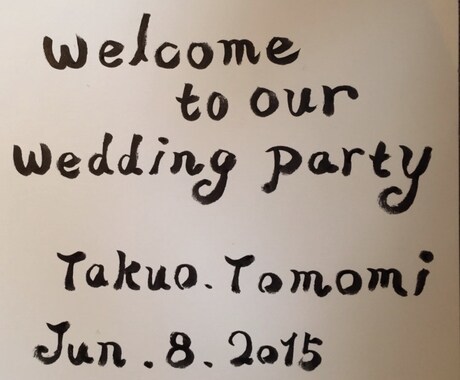 welcome
to our
wedding party
Takuo. Tomomi
Jun. 8. 2015